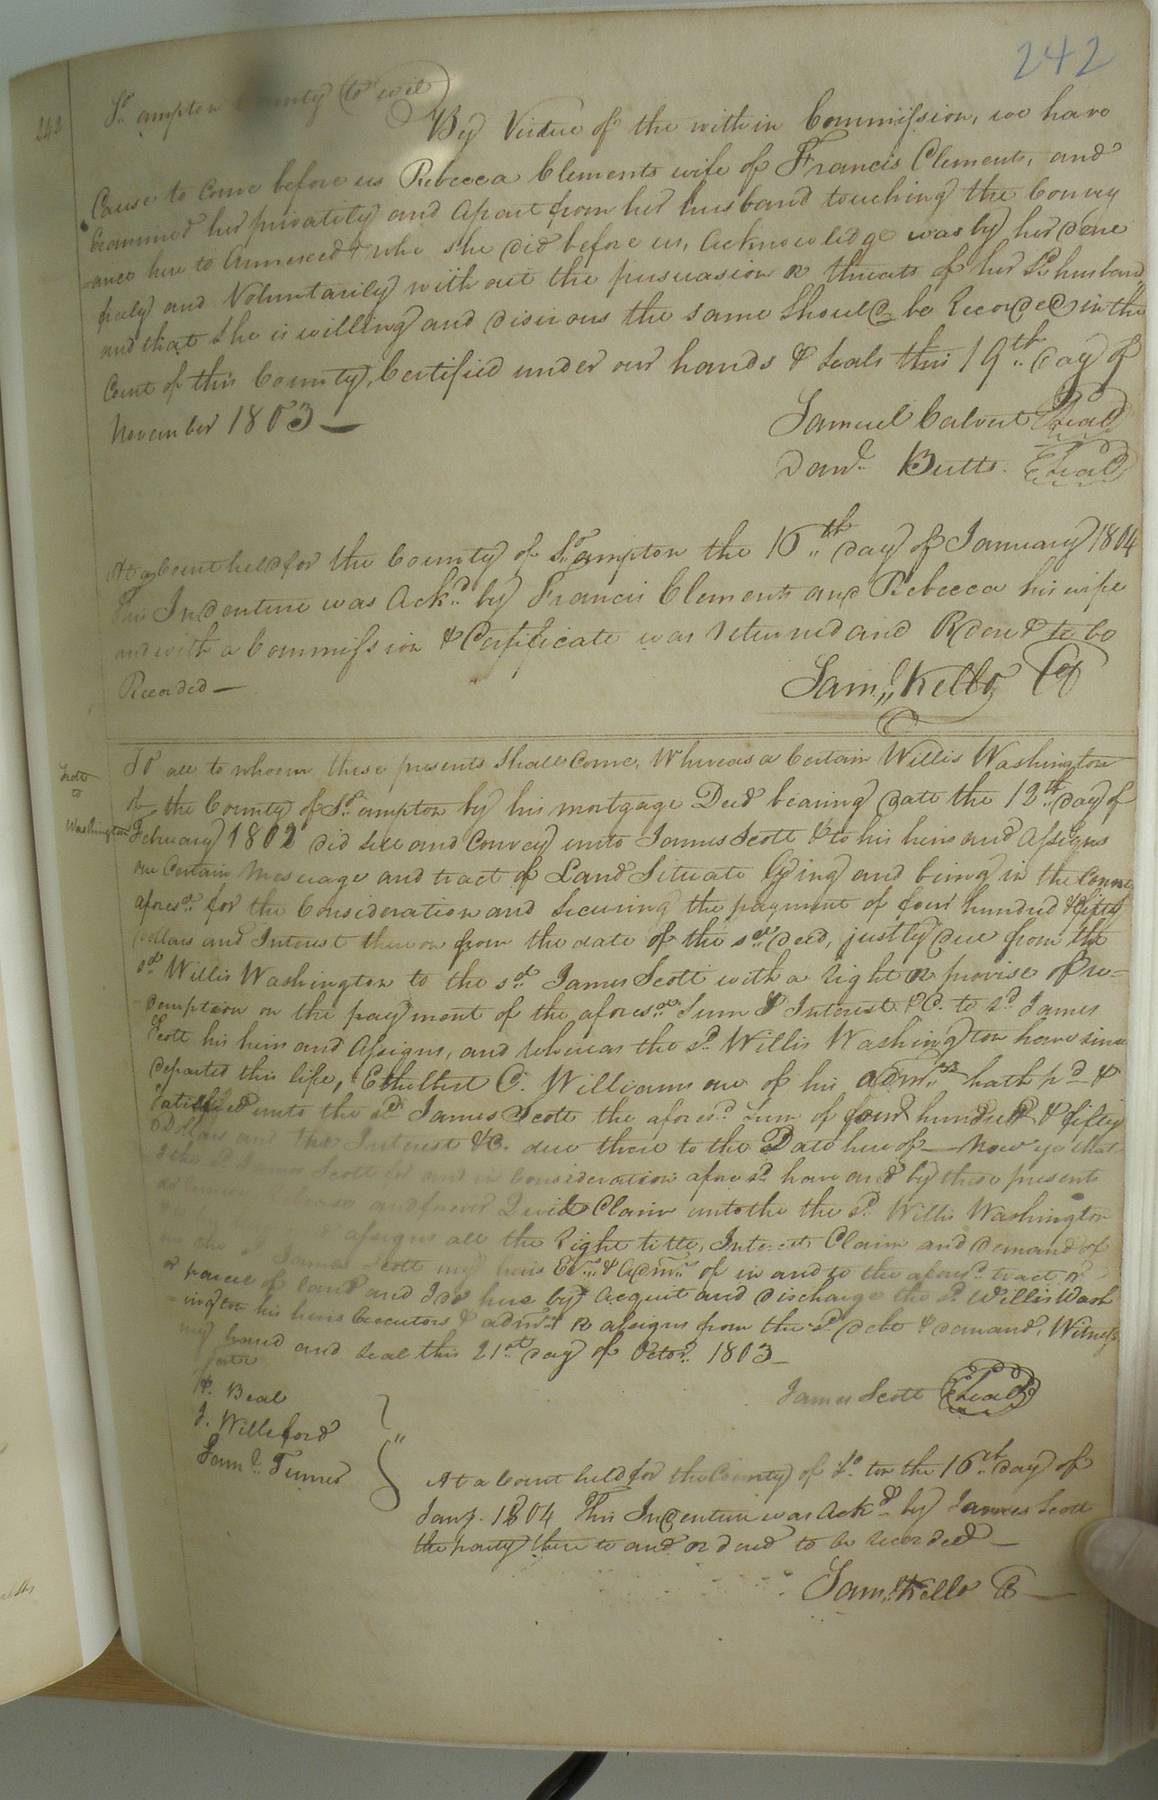 242
242
So. ampton County (to wit)
By Virtue of the within Commission, we have
Cause to Come before us Rebecca Clements wife of Francis Clements, and
Examined her privatily and apart from her husband touching the Convey
-ance here to Annexed & who she did before us, Acknowledge was by her done
freely and Voluntarily with out the persuasion or threats of her Sd. husband
and that She is willing and disirous the same Should be Recorded in the
Court of this County, Certified under our hands & Seals this 19th. day of
November 1803 —
Samuel Calvert (Seal)
Danl. Butts (Seal)
At a Court held for the County of So. ampton the 16th. day of January 1804
This Indenture was Ackd. by Francis Clements and Rebecca his wife
and with a Commission & Certificate was returned and Ordered to be
Recorded —
Saml. Kello CC
Scott
to
Washington
To all to whom these presents Shall Come, Whereas a Certain Willis Washington
of the County of So. ampton by his mortgage Deed bearing date the 12th. day of
February 1802 did sell and Convey unto James Scott & to his heirs and Assigns
one Certain Messuage and tract of Land Situate lying and being in the County
aforesd. for the Consideration and Securing the payment of four hundred & fifty
dollars and Interest thereon from the date of the sd. deed, justly due from the
sd. Willis Washington to the sd. James Scott with a right or provise of Re=
-demption on the payment of the aforesd. Sum & Interest &C. to sd. James
Scott his heirs and Assigns, and Whereas the sd. Willis Washington have since
departed this life, & Ethelbert C. Williams one of his admrs. hath pd. &
Satisfied unto the sd. James Scott the aforesd. Sum of four hundred & fifty
Dollars and the Interest &C. due there to the Date hereof — Now ye that
I the sd. James Scott for and in Consideration aforesd. have and by these presents
do release and forever Quit Claim unto the the sd. Willis Washington
assigns all the Right title, Interest Claim and demand of
me the sd. James Scott my heirs Exrs. & Admrs. of in and to the aforesd. tract or
or parcel of land and I do here by Acquit and discharge the sd. Willis Wash
-ington his heirs Executors & admrs. or assigns from the sd. debt & demand, Witness
my hand and seal this 21st. day of Octor. 1803 —
James Scott (Seal)
H. Beal
J. Williford
Saml. Turner
At a Court held for the County of So. ton the 16th. day of
Jany. 1804 This Indenture was Ackd. by James Scott
the party there to and ordered to be recorded —
Saml. Kello CC —